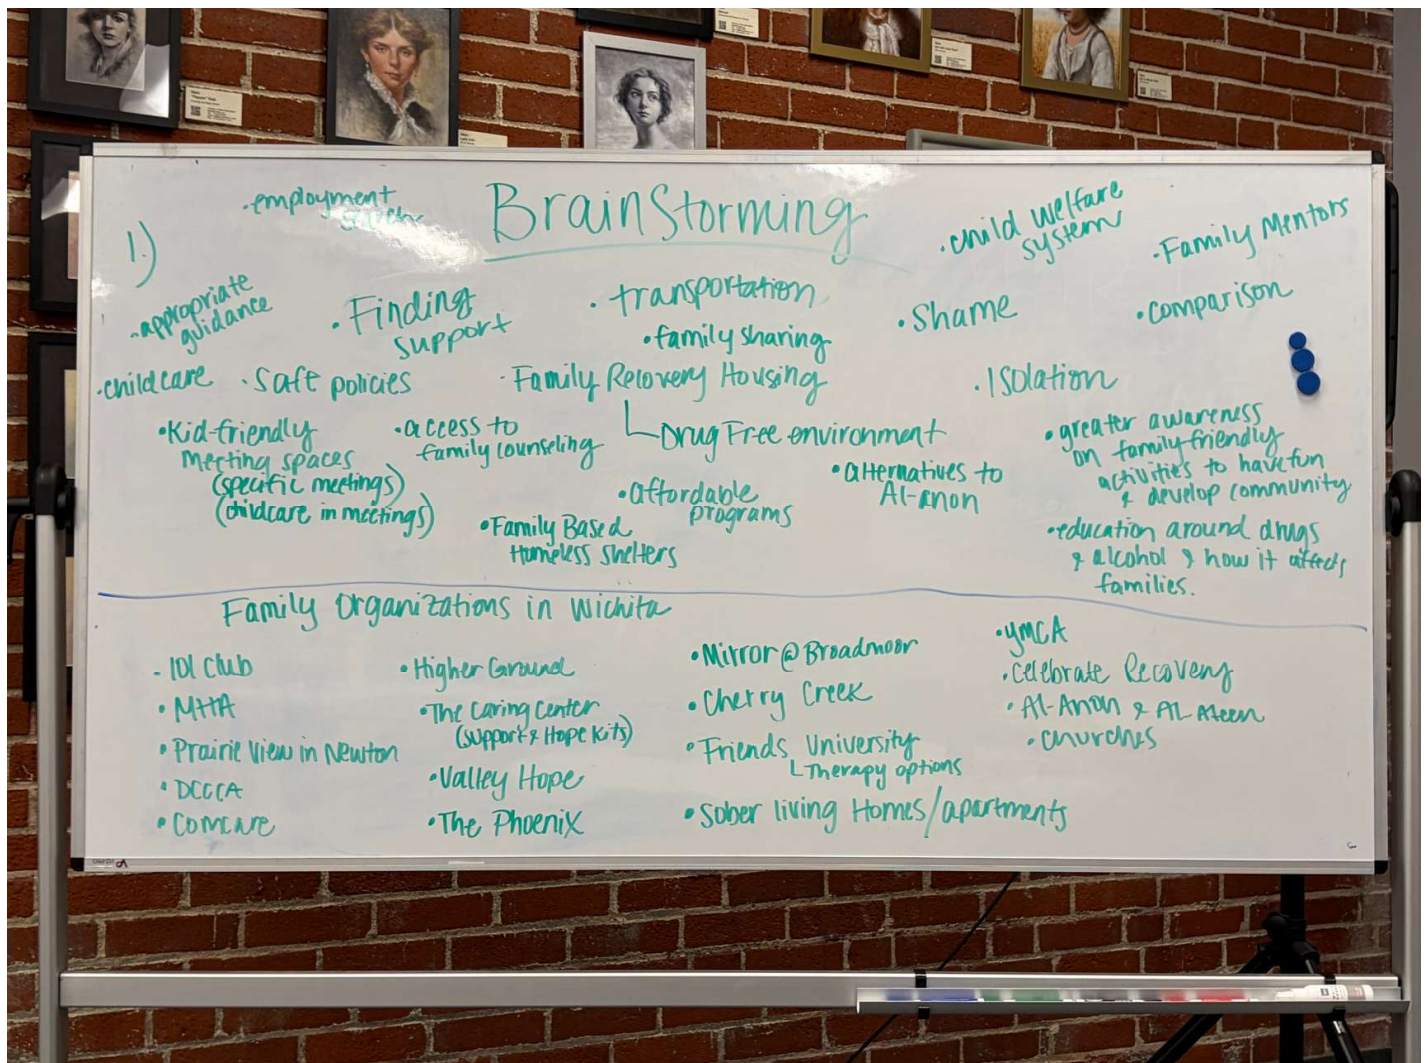 Brainstorming
• employment
1.)
• child welfare
system
• Family Mentors
• appropriate
guidance
• Finding
support
• transportation
• family sharing
• Shame
• comparison
• childcare
• Safe policies
• Family Recovery Housing
Drug Free environment
• Isolation
• Kid-friendly
meeting spaces
(specific meetings)
(childcare in meetings)
• access to
family counseling
• Family Based
Homeless shelters
• affordable
programs
• alternatives to
Al-anon
• greater awareness
on family-friendly
activities to have fun
& develop community
• education around drugs
& alcohol & how it affects
families.
Family Organizations in Wichita
- 101 Club
• MHA
• Prairie View in Newton
• DCCCA
• Comcare
• Higher Ground
• The Caring Center
(support & Hope Kits)
• Valley Hope
• The Phoenix
• Mirror @ Broadmoor
• Cherry Creek
• Friends University
Therapy options
• Sober living Homes/apartments
• YMCA
• Celebrate Recovery
• Al-Anon & Al-Ateen
• Churches